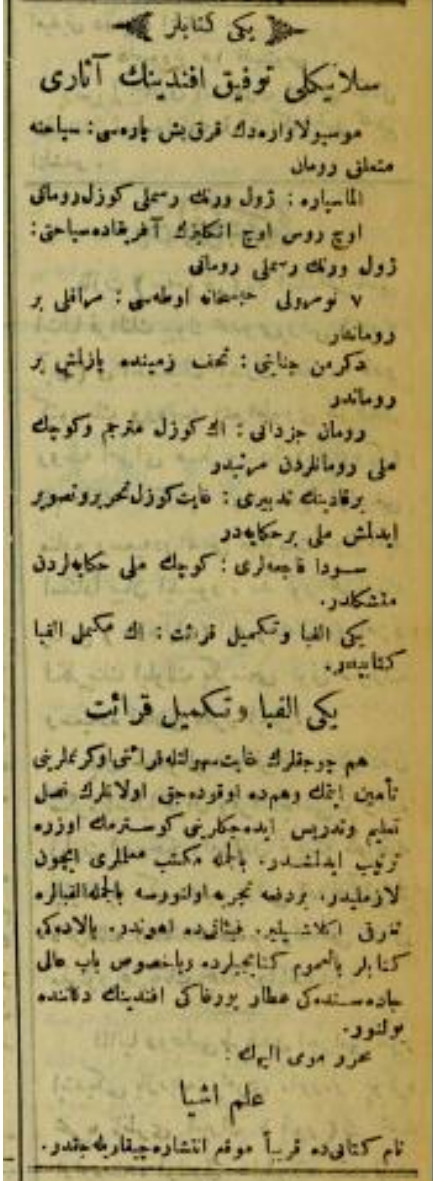 یكی كتابلر
سلانیكلی توفیق افندینك آثاری
موسیو لاوارهدك قرق بش پارهسی : سیاحته
متعلق رومان
الماسپاره : ژول ورنك رسملی كوزل رومانی
اوچ روس اوچ انكلیزك آفریقاده سیاحتی :
ژول ورنك رسملی رومانی
۷ نومرولی حبسخانه اوطهسی : مراقلی بر
روماندر
دكرمن جنایتی : تحف زمینده یازلمش بر
روماندر
رومان جزدانی : اك كوزل مترجم وكوچك
ملی رومانلردن مرتبدر
برقادینك تدبیری : غایت كوزل تحریر وتصویر
ایدلمش ملی بر حكایهدر
ســودا فاجعهلری : كوچك ملی حكایهلردن
متشكلدر.
یكی الفبا وتكمیل قرائت : اك مكمل الفبا
كتابیدر.
یكی الفبا وتكمیل قرائت
هم چوجقلرك غایت سهولتله قرائتی اوكرنملرینی
تأمین ایتمك وهمده اوقودهجق اولانلرك نصل
تعلیم وتدریس ایدهجكلرینی كوسـترمك اوزره
ترتیب ایدلمشـدر. بالجمله مكتب معلملری ایچون
لازملیدر. بردفعه تجربه اولنورسه بالجمله الفبالره
تفرقی اكلاشـیلیر. فیئاتیده اهوندر. بالادهكی
كتابلر بالعموم كتابجیلرده وباخصوص باب عالی
جادهسـندهكی عطار یورغاكی افندینك دكاننده
بولنور.
محرر مومی الیهك :
علم اشیا
نام كتابیده قریباً موقع انتشاره چیقاریلهجقدر.